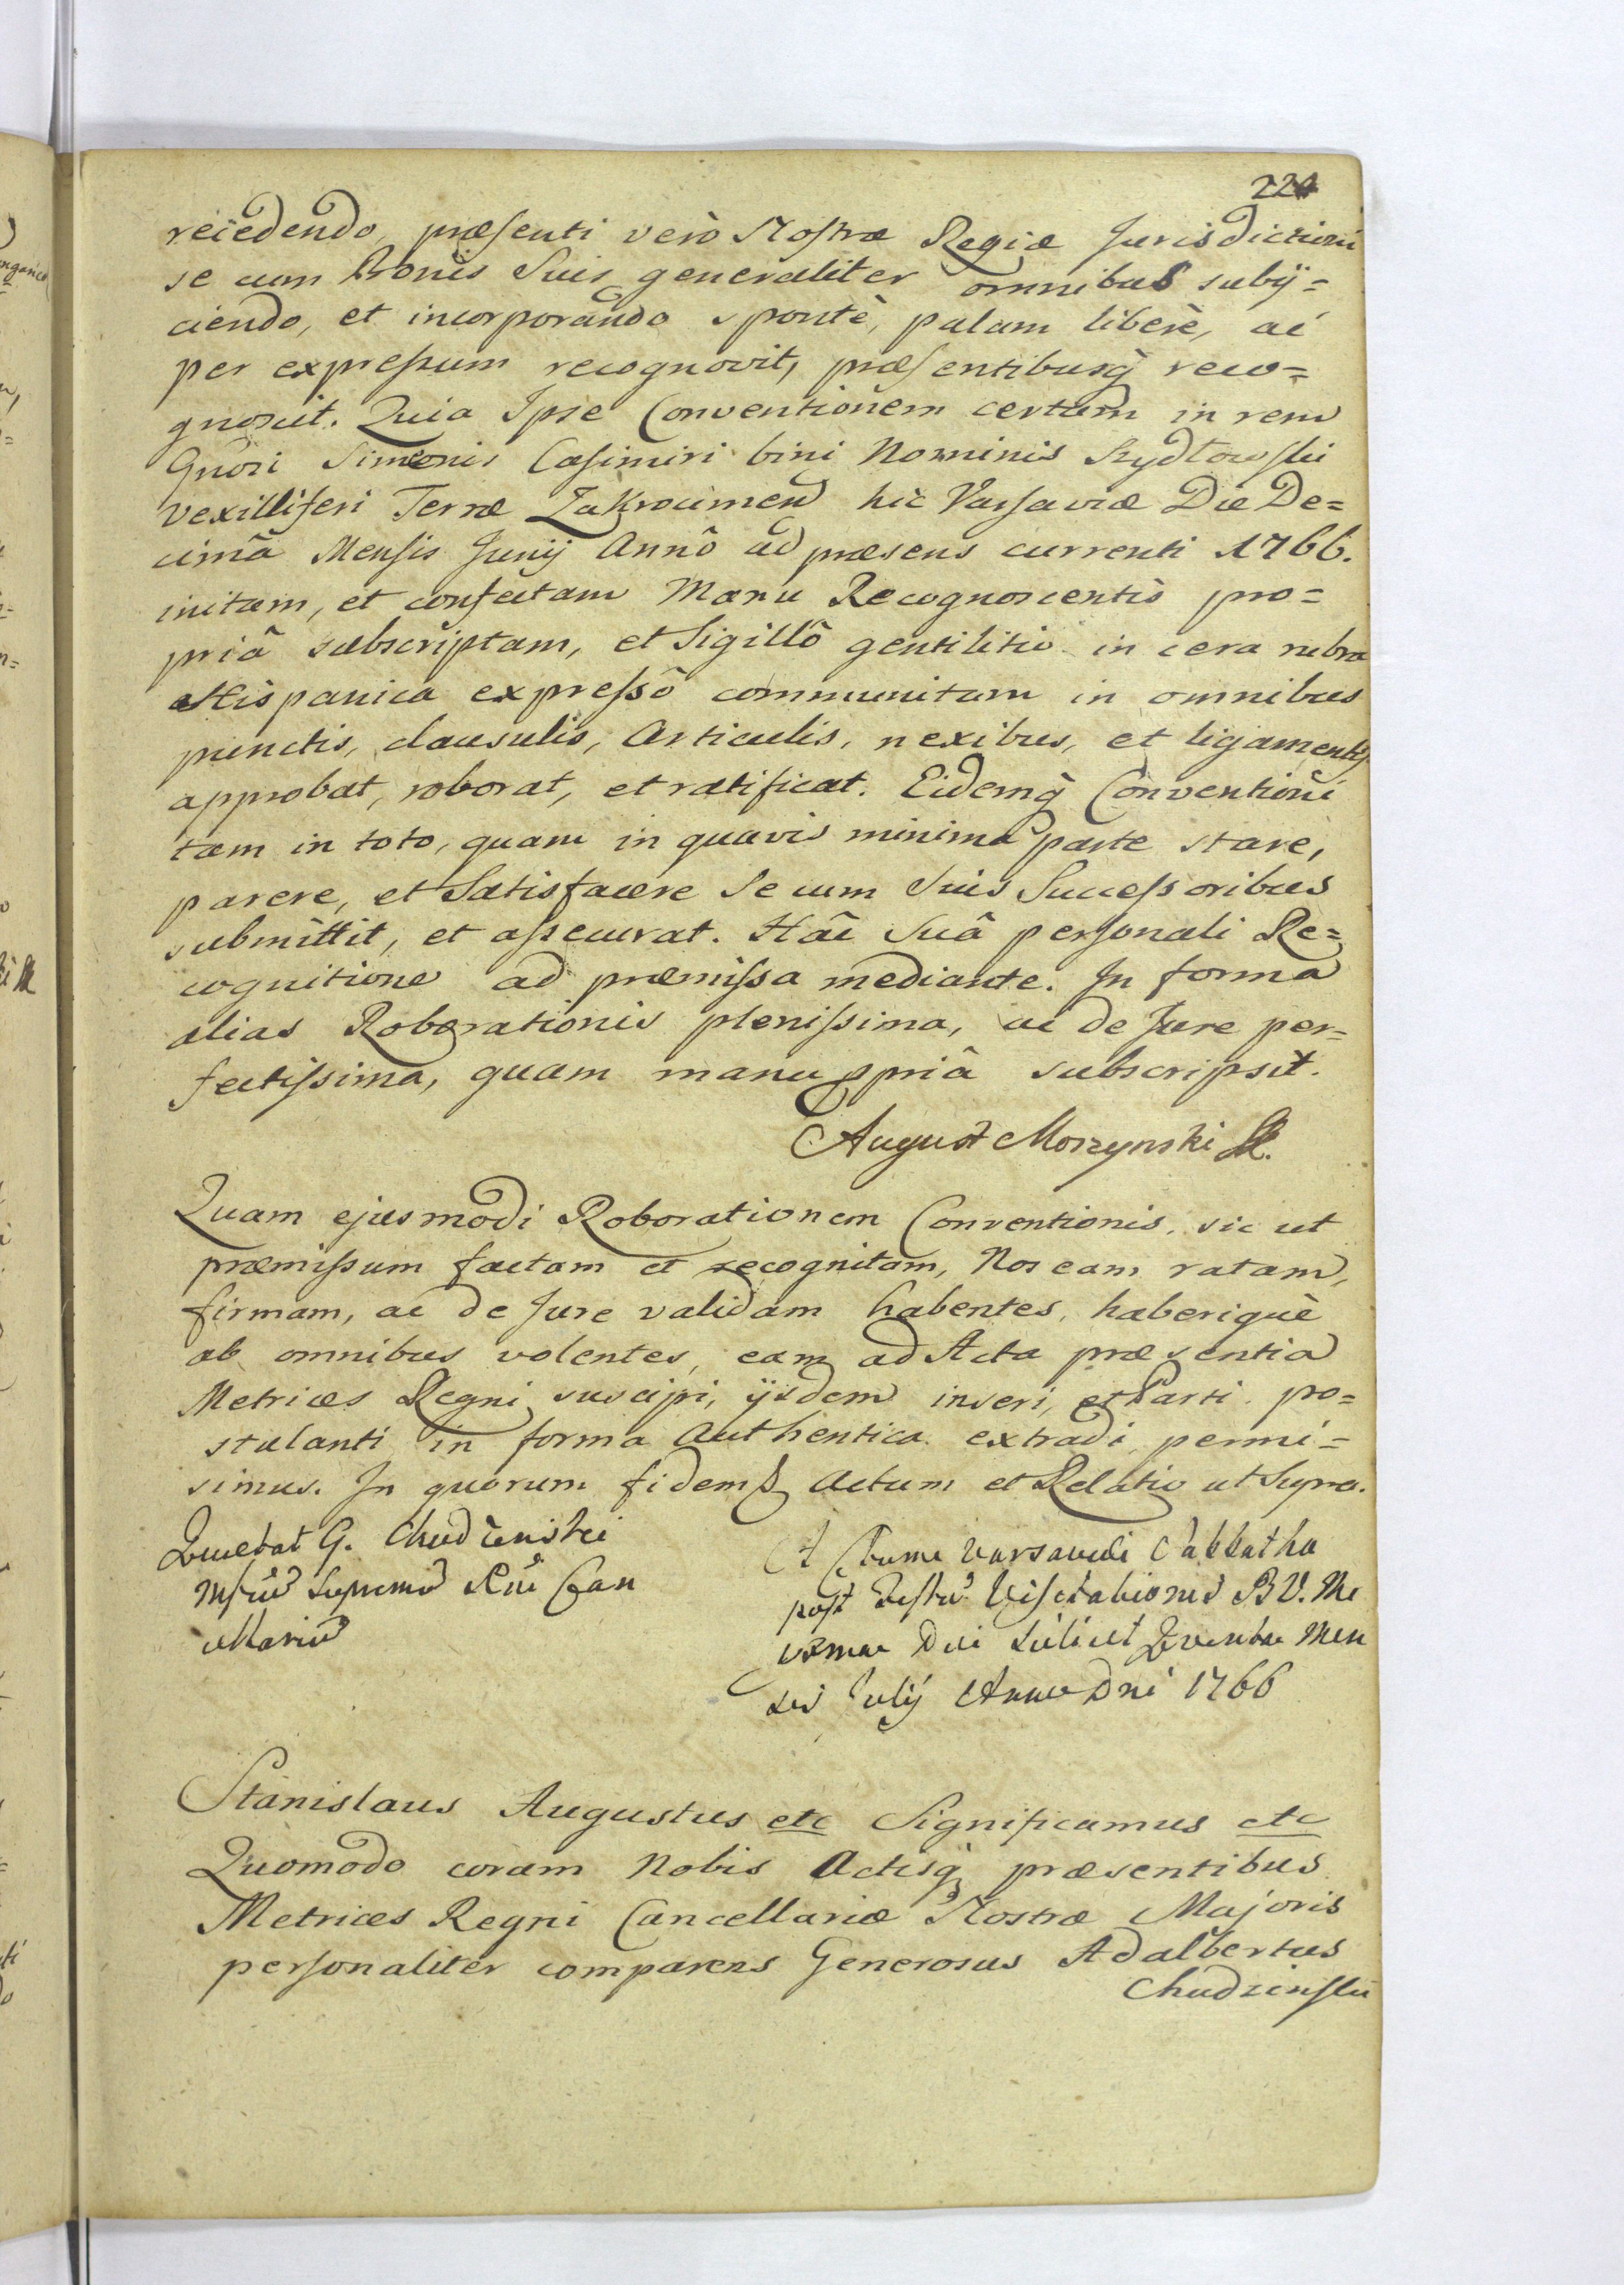 224
recedendo, præsenti verò Nostræ Regiæ Jurisdictioni
se cum Bonis Suis generaliter omnibus subij=
ciendo, et incorporando spontè, palam liberè, ac
per expressum recognovit, præsentibusq̀ reco=
gnoscit. Quia Ipse Conventionem certam in rem
Gnosi Simeonis Casimiri bini Nominis Szydłowski
Vexilliferi Terræ Zakrocimen hic Varsaviæ Die De=
cimâ Mensis Junij Annô ad præsens currenti 1766.
initam, et confectam Manu Recognoscentis pro=
priâ subscriptam, et Sigillô gentilitio in cera rubra
Hispanica expressô communitam in omnibus
punctis, clausulis, Articulis, nexibus, et ligamentis
approbat, roborat, et ratificat. Eidemq̀ Conventioni
tam in toto, quam in quavis minima parte stare,
parere, et Satisfacere Se cum Suis Successoribus
submittit, et assecurat. Hâc Suâ personali Re=
cognitione ad præmissa mediante. In forma
alias Roborationis plenissima, ac de Jure per=
fectissima, quam manu ppriâ subscripsit.
August Moszynski
Quam ejusmodi Roborationem Conventionis, sic ut
præmissum factam et recognitam, Nos eam ratam,
firmam, ac de Jure validam habentes, haberiquè
ab omnibus volentes, eam ad Acta præsentia
Metrices Regni suscipi, ijsdem inseri, et Parti po=
stulanti in forma Authentica extradi permi=
simus. In quorum fidem Actum et Relatio ut Supra.
G. Chudzinski
Supremu Can
cellariu
Actum Varsaviæ Sabbatho
post Festu Visitationis B. V. Ma
Die Scilicet Quinta Men
sis Julij Anno Dni 1766
Stanislaus Augustus etc Significamus etc
Quomodo coram Nobis Actisq̀ præsentibus
Metrices Regni Cancellariæ Nostræ Majoris
personaliter comparens Generosus Adalbertus
Chudzinski